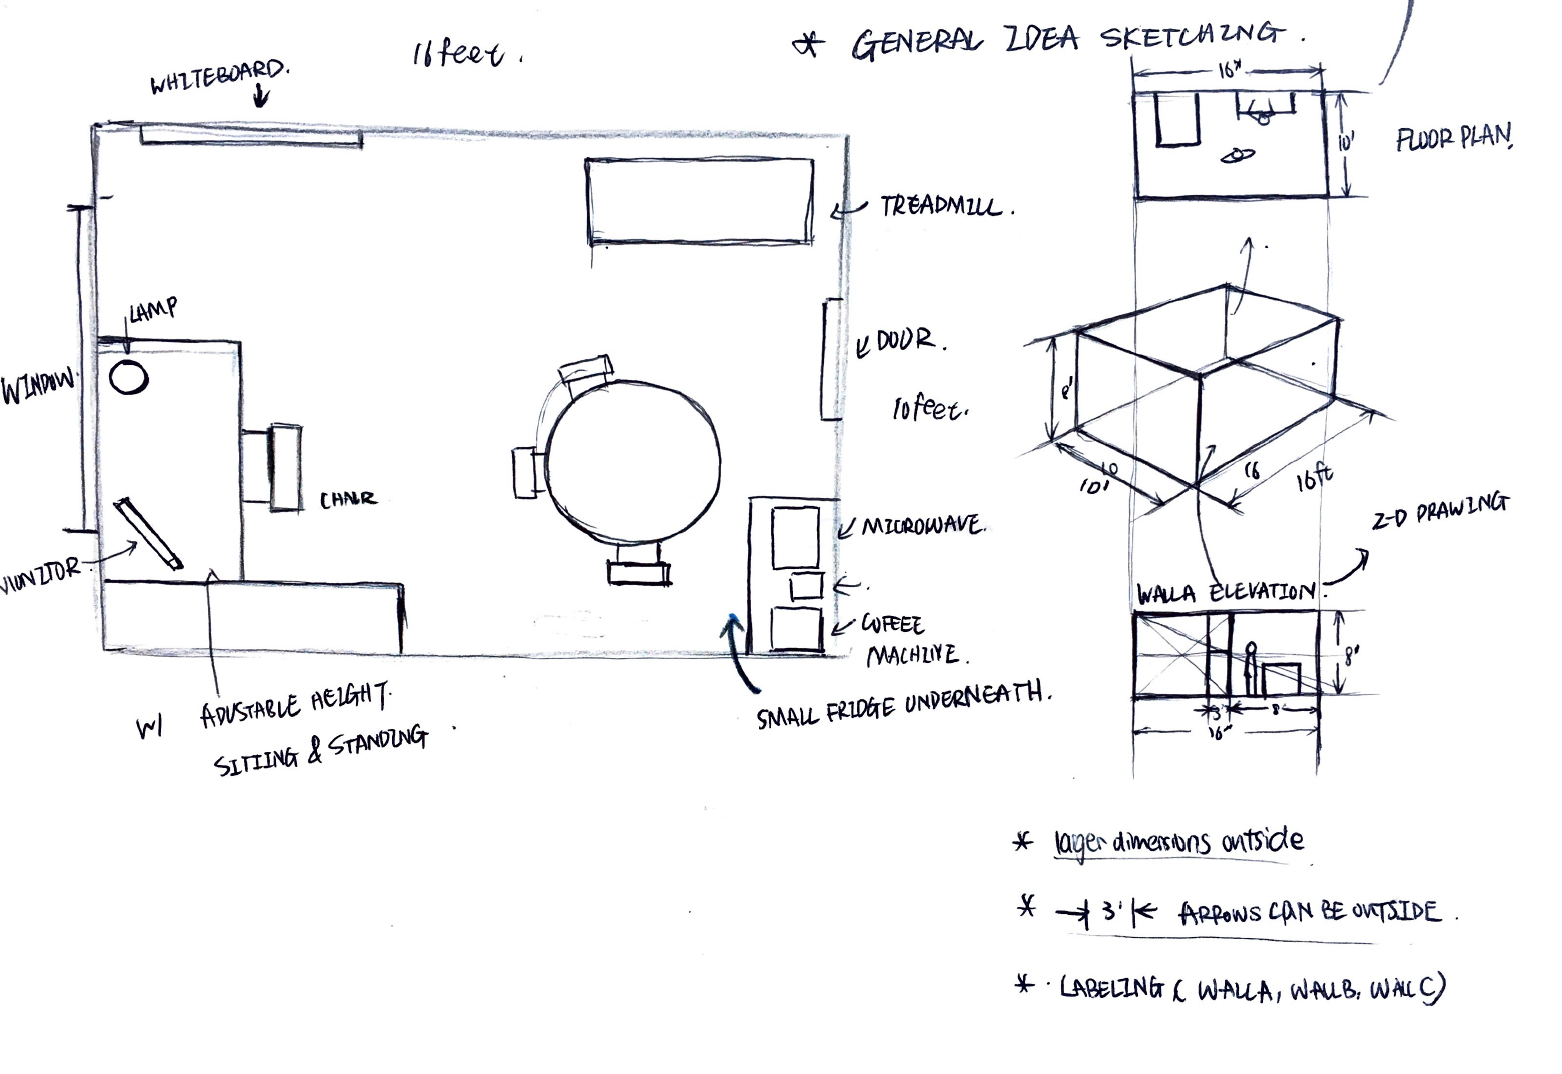 16feet.
* GENERAL IDEA SKETCHING.
WHITEBOARD.
16"
10'
FLOOR PLAN.
TREADMILL.
LAMP
DOOR.
WINDOW
10feet.
8'
10
10'
16
16ft
CHAIR
MICROWAVE.
2-D DRAWING
MONITOR
WALLA ELEVATION.
COFEEE
MACHINE.
8'
3'
8
16"
SMALL FRIDGE UNDERNEATH.
W/ ADUSTABLE HEIGHT.
SITTING & STANDING.
* lager dimensions outside
* 3' ARROWS CAN BE OUTSIDE.
* LABELING ( WALLA, WALLB, WALL C)